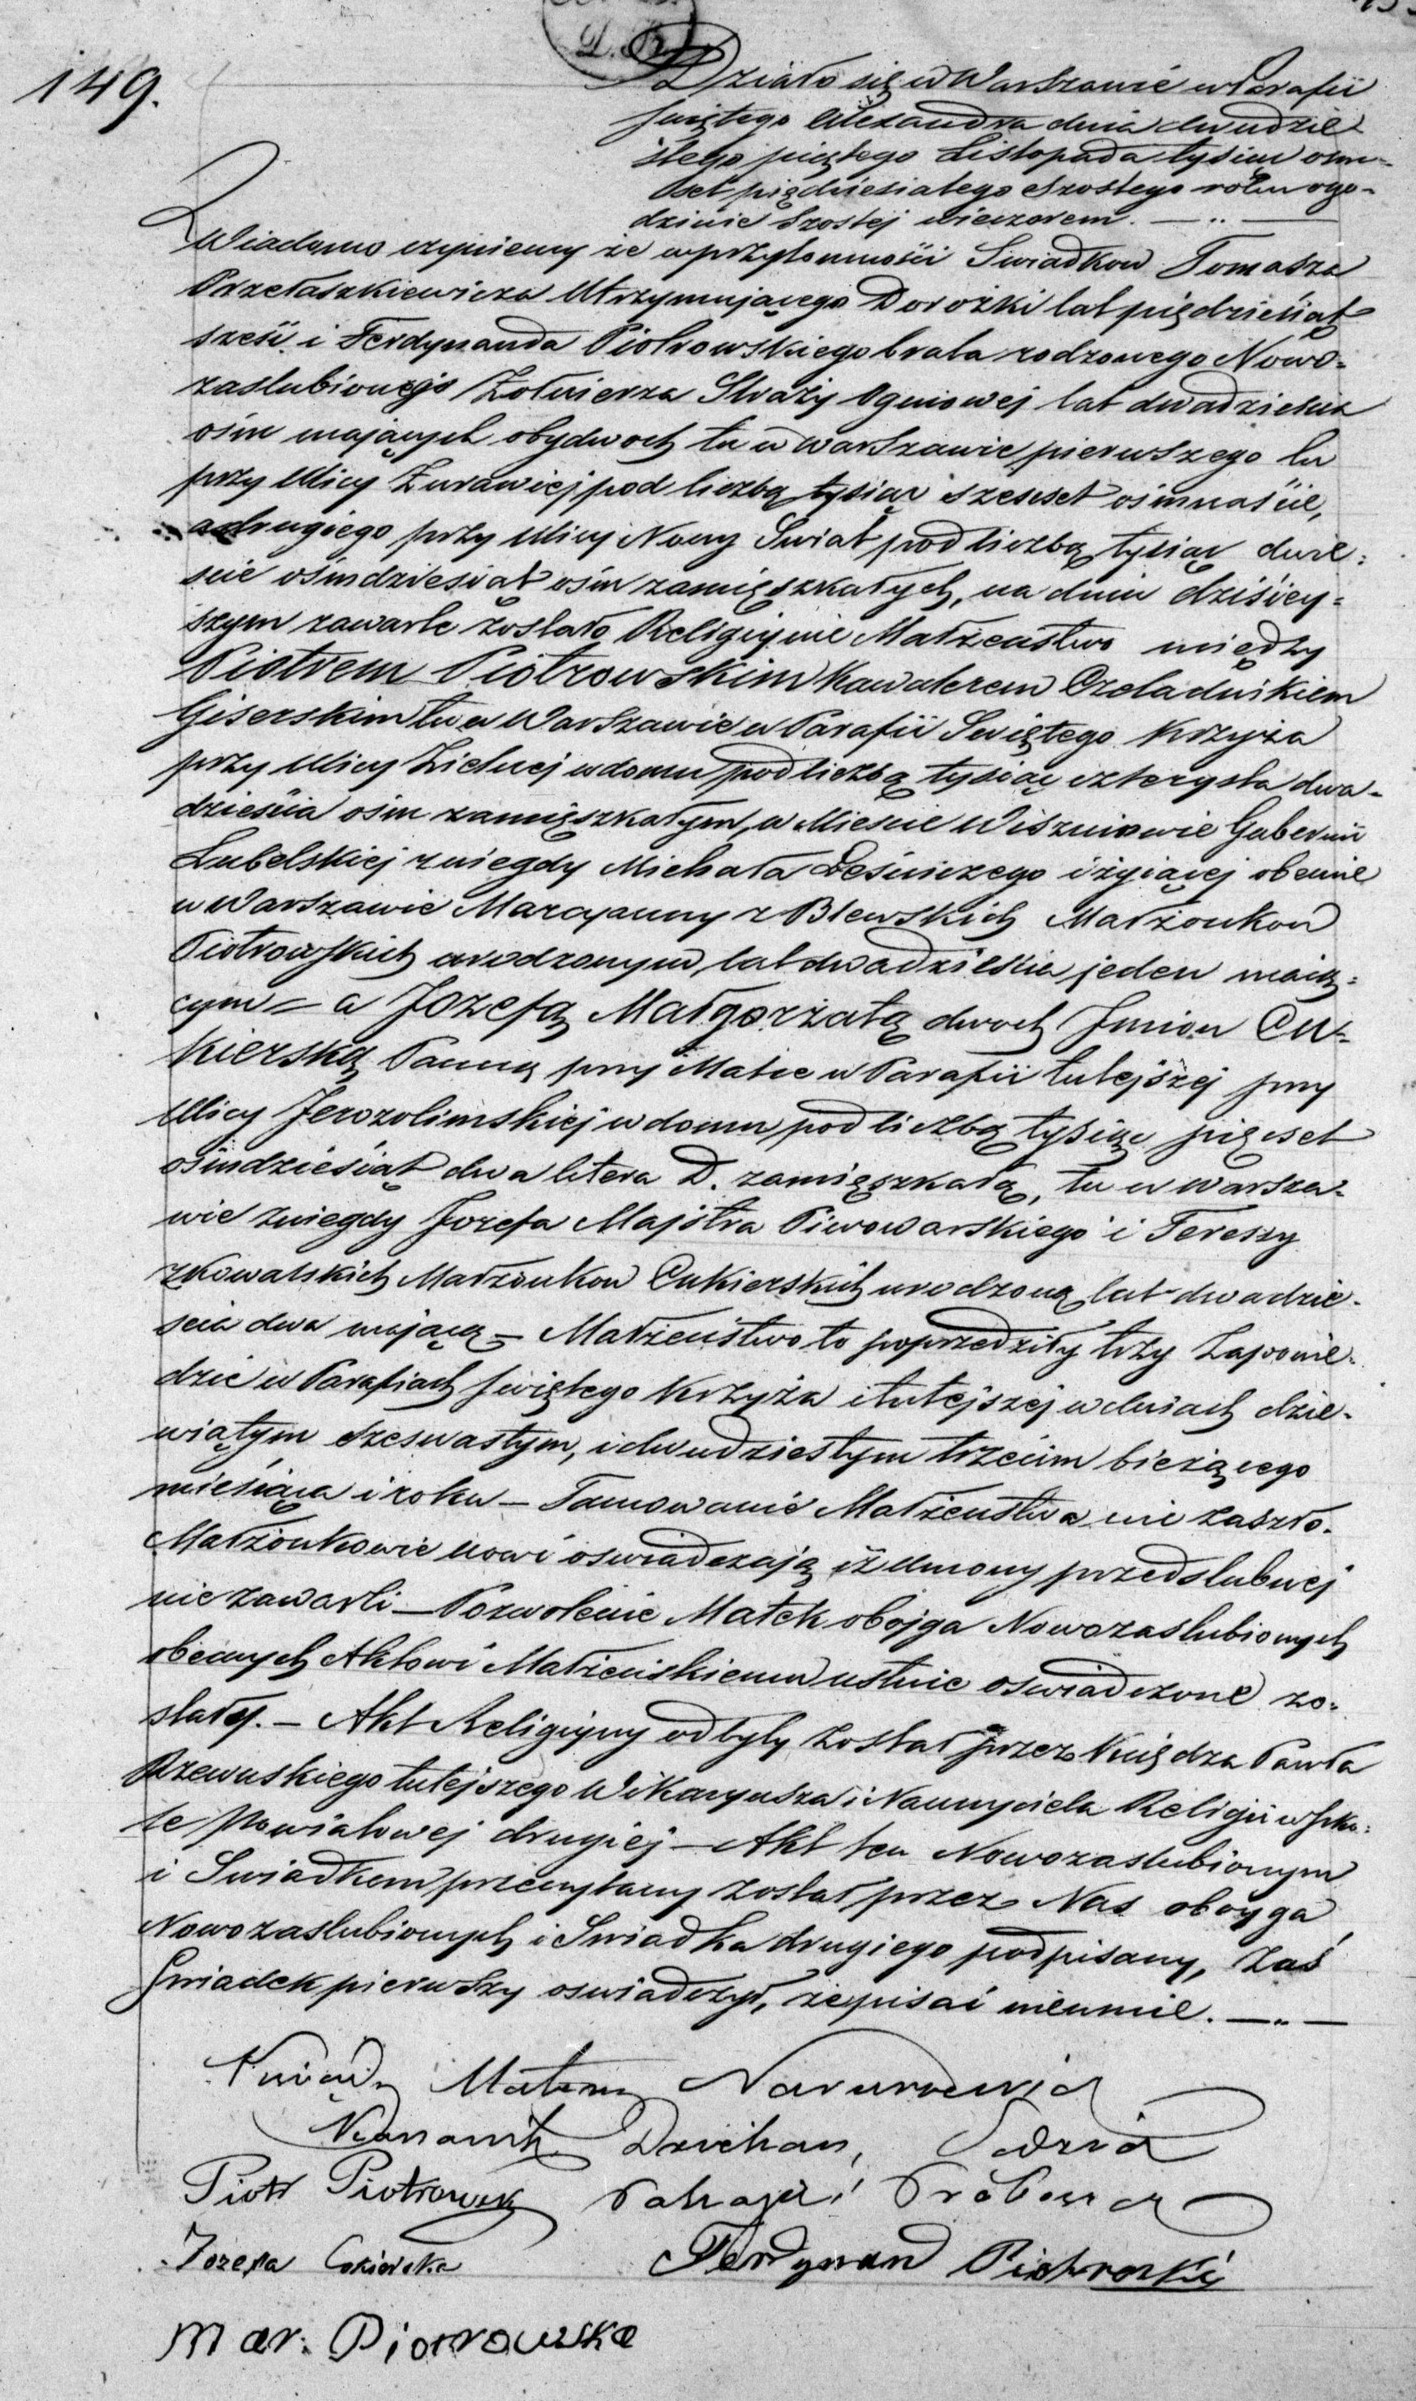 149.
Działo się w Warszawie w Parafii
Swiętego Alexandra dnia dwudzie-
stego piątego Listopada tysiąc osm-
set pięćdziesiątego szostego roku o go-
dzinie szostej wieczorem.
Wiadomo czyniemy że w przytomności Swiadkow Tomasza
Przetaszkiewicza utrzymującego Dorożki lat pięćdziesiąt
sześć i Ferdynanda Piotrowskiego brata rodzonego Nowo-
zaslubionego Żołnierza Straży Ogniowej lat dwadzieścia
ośm mających obydwoch tu w Warszawie pierwszego tu
przy Ulicy Żurawiej pod liczbą tysiąc szescset ośmnaście,
a drugiego przy Ulicy Nowy Swiat pod liczbą tysiąc dwie-
scie ośmdziesiąt ośm zamięszkałych, na dniu dzisiey-
szym zawarte zostało Religijnie Małżeństwo między
Piotrem Piotrowskim Kawalerem Czeladnikiem
Giserskim tu w Warszawie w Parafii Swiętego Krzyża
przy Ulicy Zielnej w domu pod liczbą tysiąc czterysta dwa-
dzieścia ośm zamięszkałym, w Miescie Wiszniowie Gubernii
Lubelskiej z niegdy Michała Leśniczego i żyiącej obecnie
w Warszawie Maryanny z Blewskich Małżonkow
Piotrowskich urodzonym, lat dwadzieścia jeden maią-
cym – a Jozefą Małgorzatą dwoch Jmion Cu-
kierską Panną przy Matce w Parafii tutejszej przy
Ulicy Jerozolimskiej w domu pod liczbą tysiąc pięcset
ośmdziesiąt dwa litera D. zamięszkałą, tu w Warsza-
wie z niegdy Jozefa Majstra Piwowarskiego i Teressy
z Kowalskich Małżonkow Cukierskich urodzoną lat dwadzie-
scia dwa mającą – Małżeństwo to poprzedziły trzy Zapowie-
dzie w Parafiach Swiętego Krzyża i tutejszej w dniach dzie-
wiątym szesnastym, i dwudziestym trzecim bieżącego
miesiąca i roku – Tamowanie Małżeństwa nie zaszło.
Małżonkowie nowi oswiadczają iż umowy przedslubnej
nie zawarli – Pozwolenie Matek obojga Nowozaslubionych
obecnych Aktowi Małżeńskiemu ustnie oswiadczone zo-
stały. – Akt Religijny odbyty został przez Księdza Pawła
Rzewuskiego tutejszego Wikaryusza i Nauczyciela Religii w Szko-
le Powiatowej drugiej – Akt ten Nowozaslubionym
i Swiadkom przeczytany został przez Nas oboyga
Nowozaslubionych i Swiadka drugiego podpisany, zaś
Swiadek pierwszy oswiadczył, że pisać nieumie.
Ksiądz Mateusz
Kanonik Dziekan, Sędzia
Piotr Piotrowski
Proboszcz
Jozefa Cukierska
Ferdynand Piotrowski
Mar. Piotrowska